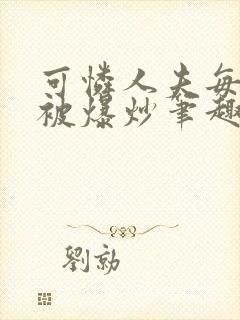 可憐人夫每
被爆炒筆趣
劉勍